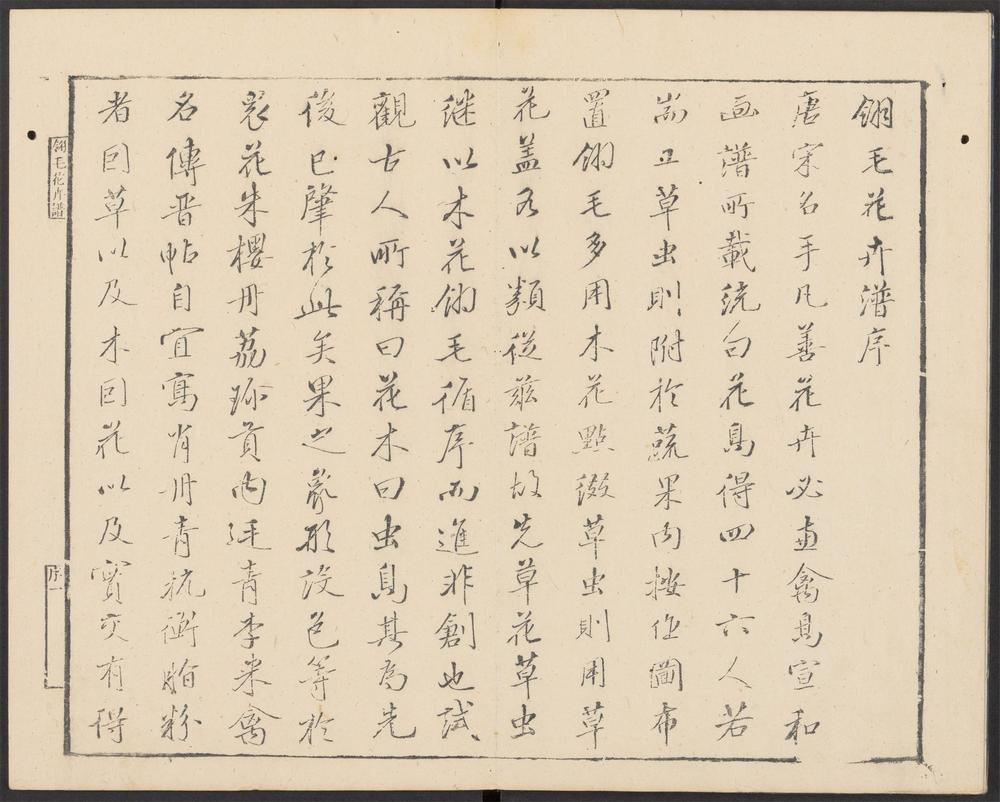 翎毛花卉譜序
唐宋名手凡善花卉必畫禽鳥宣和
画譜所載統句花鳥得四十六人若
耑工草虫則附於蔬果内按作圖布
置翎毛多用木花點綴草虫則用草
花盖各以類從兹譜故先草花草虫
继以木花翎毛循序而進非創也試
觀古人所稱曰花木曰虫鳥其為先
後已肇於此矣果之象形設色等於
衆花朱櫻丹荔珎貢内廷青李來禽
名傳晋帖自宜寫肖丹青抗衡脂粉
者回草以及木回花以及實交有得
翎毛花卉譜
序一